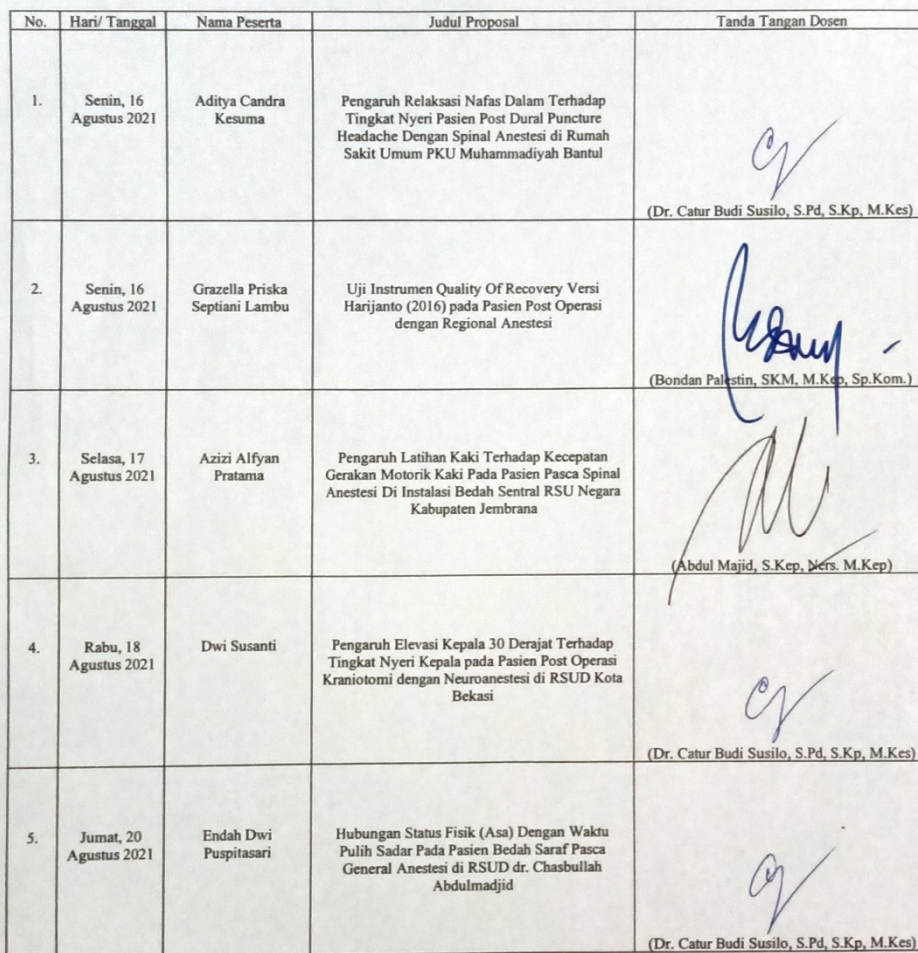 No. Hari/ Tanggal Nama Peserta Judul Proposal Tanda Tangan Dosen
1. Senin, 16 Aditya Candra Pengaruh Relaksasi Nafas Dalam Terhadap
Agustus 2021 Kesuma Tingkat Nyeri Pasien Post Dural Puncture
Headache Dengan Spinal Anestesi di Rumah
Sakit Umum PKU Muhammadiyah Bantul
(Dr. Catur Budi Susilo, S.Pd, S.Kp, M.Kes)
2. Senin, 16 Grazella Priska Uji Instrumen Quality Of Recovery Versi
Agustus 2021 Septiani Lambu Harijanto (2016) pada Pasien Post Operasi
dengan Regional Anestesi
(Bondan Palestin, SKM, M.Kep, Sp.Kom.)
3. Selasa, 17 Azizi Alfyan Pengaruh Latihan Kaki Terhadap Kecepatan
Agustus 2021 Pratama Gerakan Motorik Kaki Pada Pasien Pasca Spinal
Anestesi Di Instalasi Bedah Sentral RSU Negara
Kabupaten Jembrana
(Abdul Majid, S.Kep, Ners. M.Kep)
4. Rabu, 18 Dwi Susanti Pengaruh Elevasi Kepala 30 Derajat Terhadap
Agustus 2021 Tingkat Nyeri Kepala pada Pasien Post Operasi
Kraniotomi dengan Neuroanestesi di RSUD Kota
Bekasi
(Dr. Catur Budi Susilo, S.Pd, S.Kp, M.Kes)
5. Jumat, 20 Endah Dwi Hubungan Status Fisik (Asa) Dengan Waktu
Agustus 2021 Puspitasari Pulih Sadar Pada Pasien Bedah Saraf Pasca
General Anestesi di RSUD dr. Chasbullah
Abdulmadjid
(Dr. Catur Budi Susilo, S.Pd, S.Kp, M.Kes)